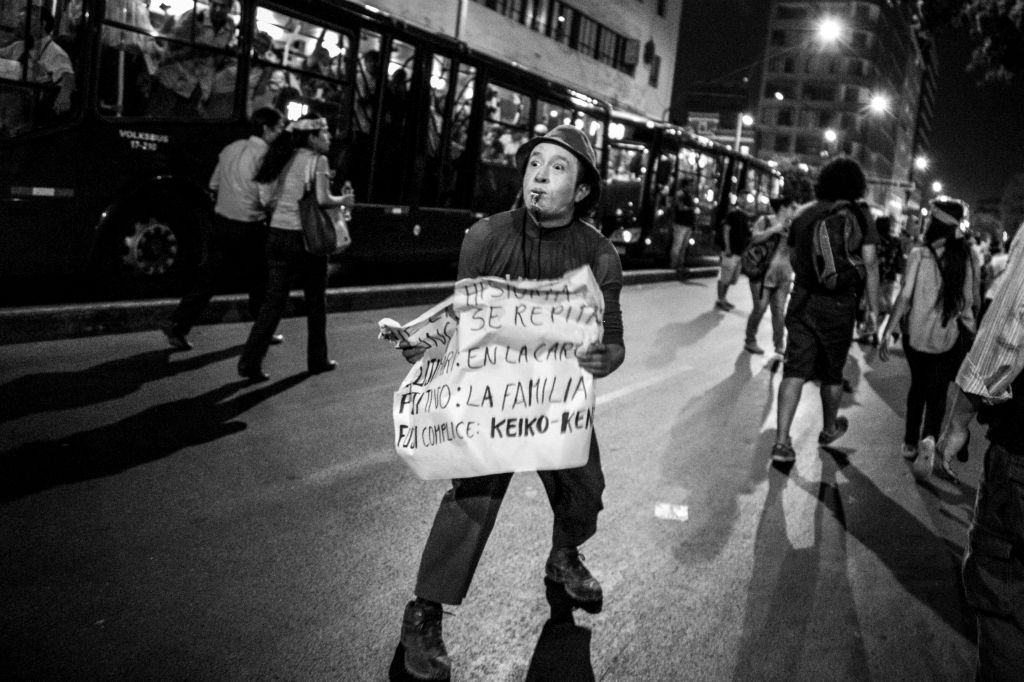 VOLKSBUS
17-210
HISTORIA
SE REPITA
: EN LA CARC
: LA FAMILIA
FUJI COMPLICE: KEIKO-KEN